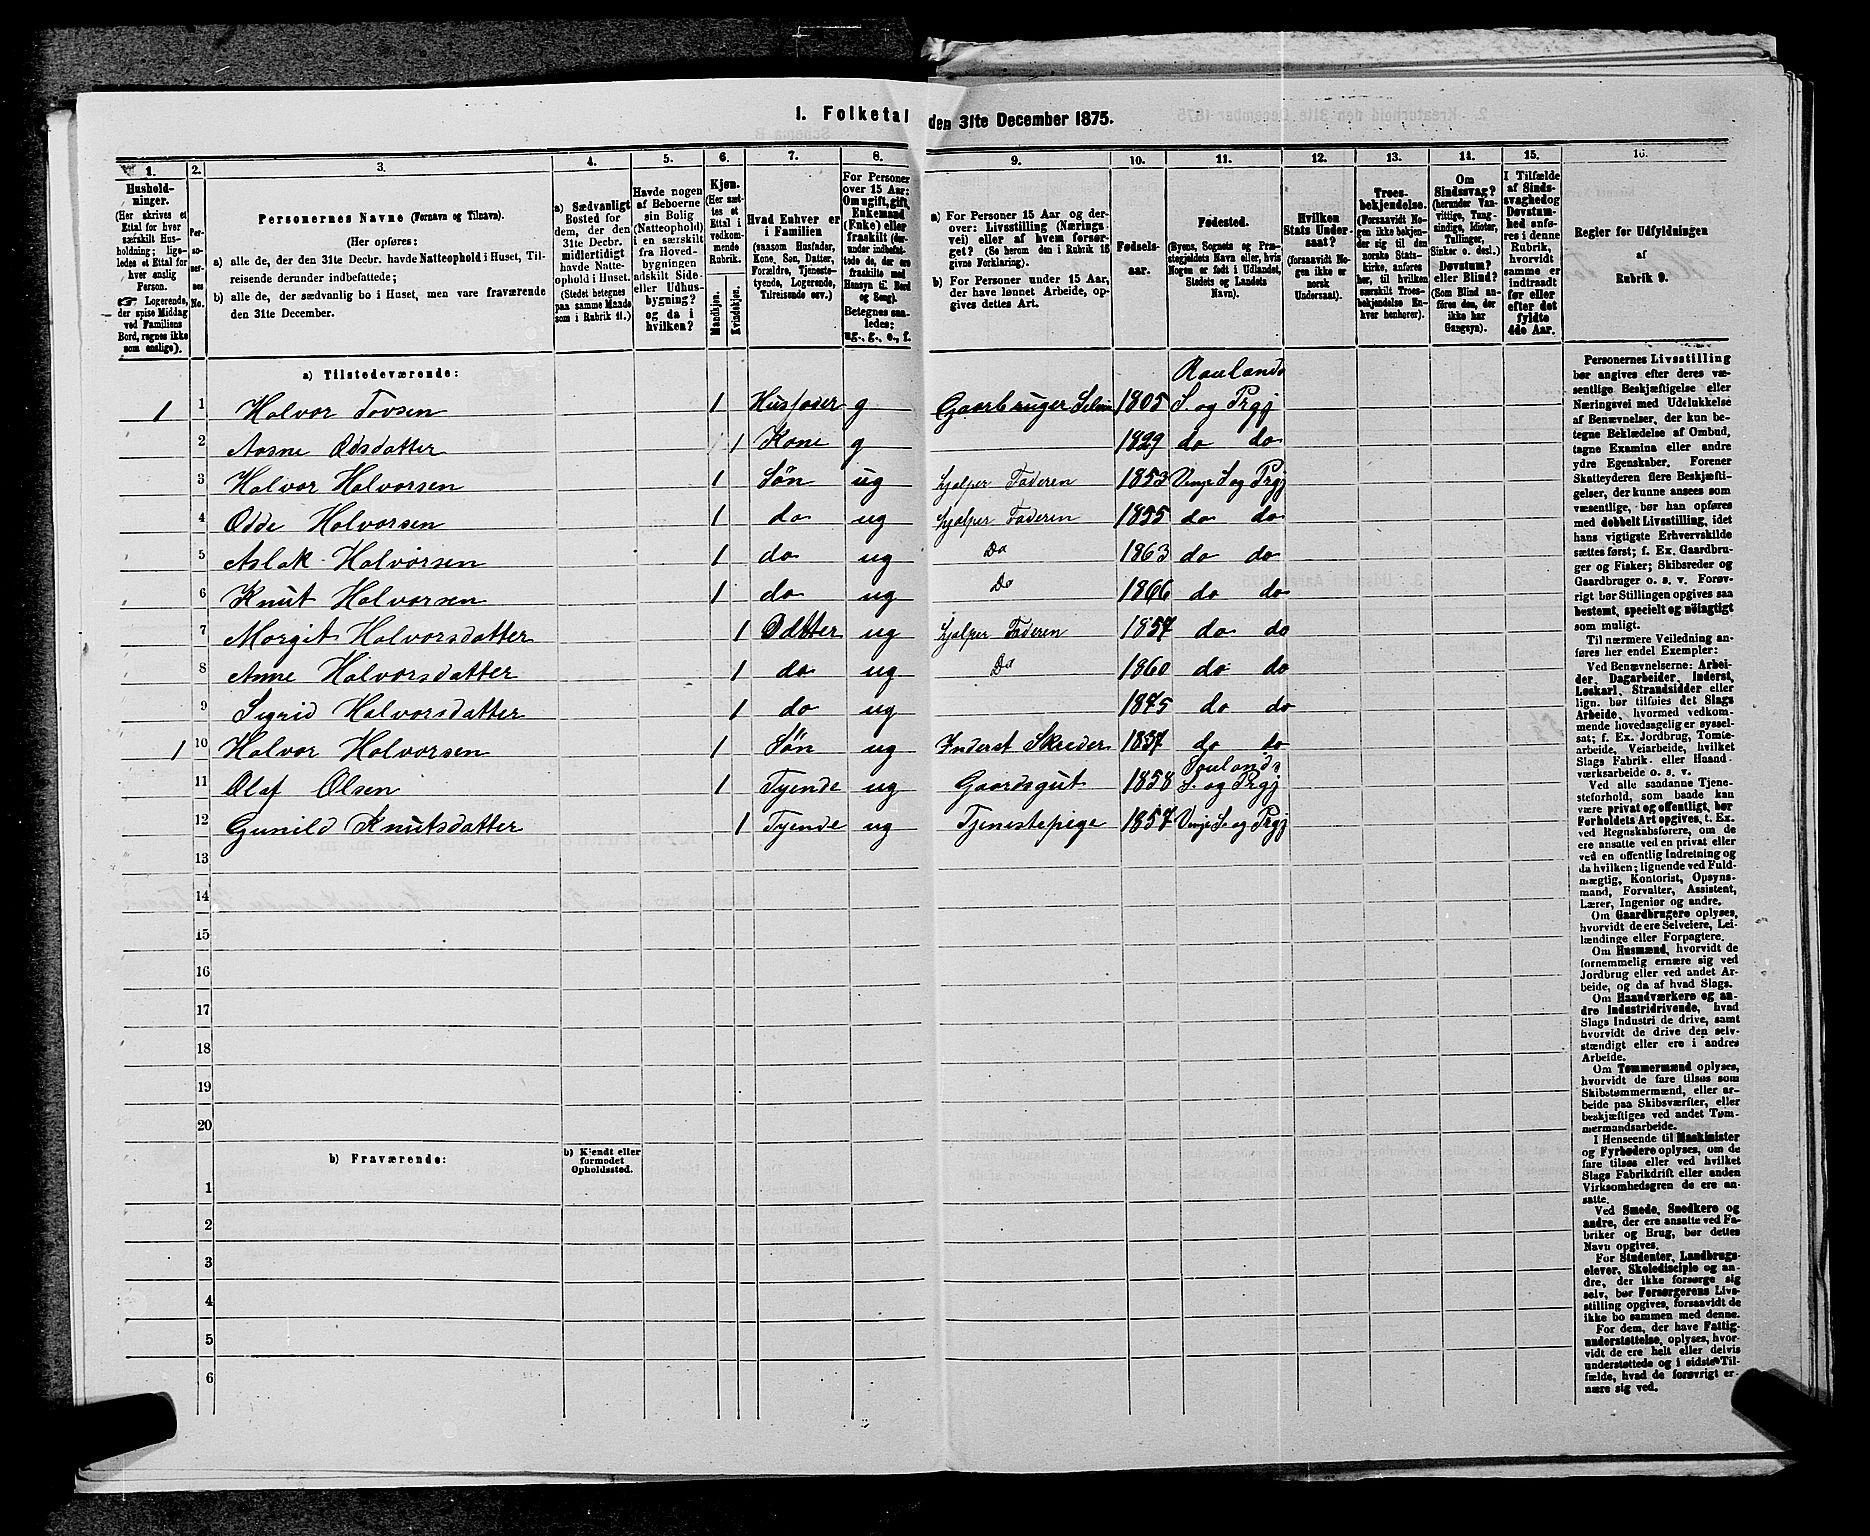 1. Folketal den 31te December 1875.
1. 2. 3. 4. 5. 6. 7. 8. 9. 10. 11. 12. 13. 14. 15. 16.
Hushold-
ninger.
(Her skrives et
Ettal for hver
særskilt Hus-
holdning; lige-
ledes et Ettal for
hver enslig
Person.
☞ Logerende,
der spise Middag
ved Familiens
Bord, regnes ikke
som enslige).
Per-
so-
ner-
nes
No.
Personernes Navne (Fornavn og Tilnavn).
(Her opføres:
a) alle de, der den 31te Decbr. havde Natteophold i Huset, Til-
reisende derunder indbefattede;
b) alle de, der sædvanlig bo i Huset, men vare fraværende
den 31te December.
a) Sædvanligt
Bosted for
dem, der den
31te Decbr.
midlertidigt
havde Natte-
ophold i Huset.
(Stedet betegnes
paa samme Maade
som i Rubrik 11.)
Havde nogen
af Beboerne
sin Bolig
(Natteophold)
i en særskilt
fra Hoved-
bygningen
adskilt Side-
eller Udhus-
bygning?
og da i
hvilken?
Kjøn.
(Her sæt-
tes et
Ettal i
vedkom-
mende
Rubrik.
Mandkjøn.
Kvindekjøn.
Hvad Enhver er
i Familien
(saasom Husfader,
Kone, Søn, Datter,
Forældre, Tjeneste-
tyende, Logerende,
Tilreisende osv.)
For Personer
over 15 Aar:
Om ugift, gift,
Enkemand
(Enke) eller
fraskilt (der-
under indbefat-
tede de, der ere
fraskilte med
Hensyn til Bord
og Seng).
Betegnes saa-
ledes:
ug., g., e., f.
a) For Personer 15 Aar og der-
over: Livsstilling (Nærings-
vei) eller af hvem forsør-
get? (Se herom den i Rubrik 16
givne Forklaring).
b) For Personer under 15 Aar,
der have lønnet Arbeide, op-
gives dettes Art.
Fødsels-
aar.
Fødested.
(Byens, Sognets og Præ-
stegjeldets Navn eller, hvis
Nogen er født i Udlandet,
Stedets og Landets
Navn).
Hvilken
Stats Under-
saat?
(forsaavidt No-
gen ikke er
norsk
Undersaat).
Troes-
bekjendelse.
(Forsaavidt No-
gen ikke bekjen-
der sig til den
norske Stats-
kirke, anføres
her, til hvilken
særskilt Troes-
bekjendelse En-
hver henhører).
Om
Sindssvag?
(herunder Van-
vittige, Tung-
sindige, Idioter,
Tullinger,
Sinker o. desl.).
Døvstum?
eller Blind?
(Som Blind an-
føres den, der
ikke har
Gangsyn).
I Tilfælde
af Sinds-
svaghed og
Døvstum-
hed anføre-
s i denne
Rubrik,
hvorvidt
samme er
indtraadt
før eller
efter det
fyldte
4de Aar.
Regler for Udfyldningen
af
Rubrik 9.
a) Tilstedeværende:
Raulands
1 1 Halvor Tovsen 1 Husfader g Gaarbruger Selvei 1805 S. og Prgj
2 Aasne Odsdatter 1 Kone g 1829 do do
3 Halvor Halvorsen 1 Søn ug hjælper Faderen 1853 Vinje S og Prgj
4 Odde Halvorsen 1 do ug hjælper Faderen 1855 do do
5 Aslak Halvorsen 1 do ug Do 1863 do do
6 Knut Halvorsen 1 do ug Do 1866 do do
7 Morgit Halvorsdatter 1 Datter ug hjælper Faderen 1857 do do
8 Anne Halvorsdatter 1 do ug Do 1860 do do
9 Sigrid Halvorsdatter 1 do ug 1875 do do
1 10 Halvor Halvorsen 1 Søn ug Inderst Skreder 1837 do do
Raulands
11 Olaf Olsen 1 Tyende ug Gaardsgut 1858 S. og Prgj
12 Gunild Knutsdatter 1 Tyende ug Tjenestepige 1857 Vinje S. og Prgj
13
14
15
16
17
18
19
20
b) Fraværende:
b) Kjendt eller
formodet
Opholdssted.
1
2
3
4
5
6
Personernes Livsstilling
bør angives efter deres væ-
sentlige Beskjæftigelse eller
Næringsvei med Udelukkelse
af Benævnelser, der kun be-
tegne Beklædelse af Ombud,
tagne Examina eller andre
ydre Egenskaber. Forener
Skatteyderen flere Beskjæfti-
gelser, der kunne ansees som
væsentlige, bør han opføres
med dobbelt Livsstilling, idet
hans vigtigste Erhvervskilde
sættes først; f. Ex. Gaardbru-
ger og Fisker; Skibsreder og
Gaardbruger o. s. v. Forøv-
rigt bør Stillingen opgives saa
bestemt, specielt og nøiagtigt
som muligt.
Til nærmere Veiledning an-
føres her endel Exempler:
Ved Benævnelserne: Arbei-
der, Dagarbeider, Inderst,
Løskarl, Strandsidder eller
lign. bør tilføies det Slags
Arbeide, hvormed vedkom-
mende hovedsagelig er syssel-
sat; f. Ex. Jordbrug, Tomte-
arbeide, Veiarbeide, hvilket
Slags Fabrik- eller Haand-
værksarbeide o. s. v.
Ved alle saadanne Tjene-
steforhold, som baade kan
være privat og offentligt, bør
Forholdets Art opgives, t. Ex.
ved Regnskabsførere, om de
ere ansatte ved en privat eller
ved en offentlig Indretning og
da hvilken; lignende ved Fuld-
mægtig, Kontorist, Opsyns-
mand, Forvalter, Assistent,
Lærer, Ingeniør og andre.
Om Gaardbrugere oplyses,
hvorvidt de ere Selveiere, Lei-
lændinge eller Forpagtere.
Om Husmænd, hvorvidt de
fornemmelig ernære sig ved
Jordbrug eller ved andet Ar-
beide, og da af hvad Slags.
Om Haandværkere og an-
dre Industridrivende, hvad
Slags Industri de drive, samt
hvorvidt de drive den selv-
stændigt eller ere i andres
Arbeide.
Om Tømmermænd oplyses,
hvorvidt de fare tilsøs som
Skibstømmermænd, eller ar-
beide paa Skibsværfter, eller
beskjæftiges ved andet Tøm-
mermandsarbeide.
I Henseende til Maskinister
og Fyrbødere oplyses, om de
fare tilsøs eller ved hvilket
Slags Fabrikdrift eller anden
Virksomhedsgren de ere an-
satte.
Ved Smede, Snedkere og
andre, der ere ansatte ved Fa-
briker og Brug, bør dettes
Navn opgives.
For Studenter, Landbrugs-
elever, Skoledisciple og an-
dre, der ikke forsørge sig
selv, bør Forsørgerens Livs-
stilling opgives, forsaavidt de
ikke bo sammen med denne.
For dem, der have Fattig-
understøttelse, oplyses, hvor-
vidt de ere helt eller delvis
understøttede og i sidste Til-
fælde, hvad de forøvrigt er-
nære sig ved.